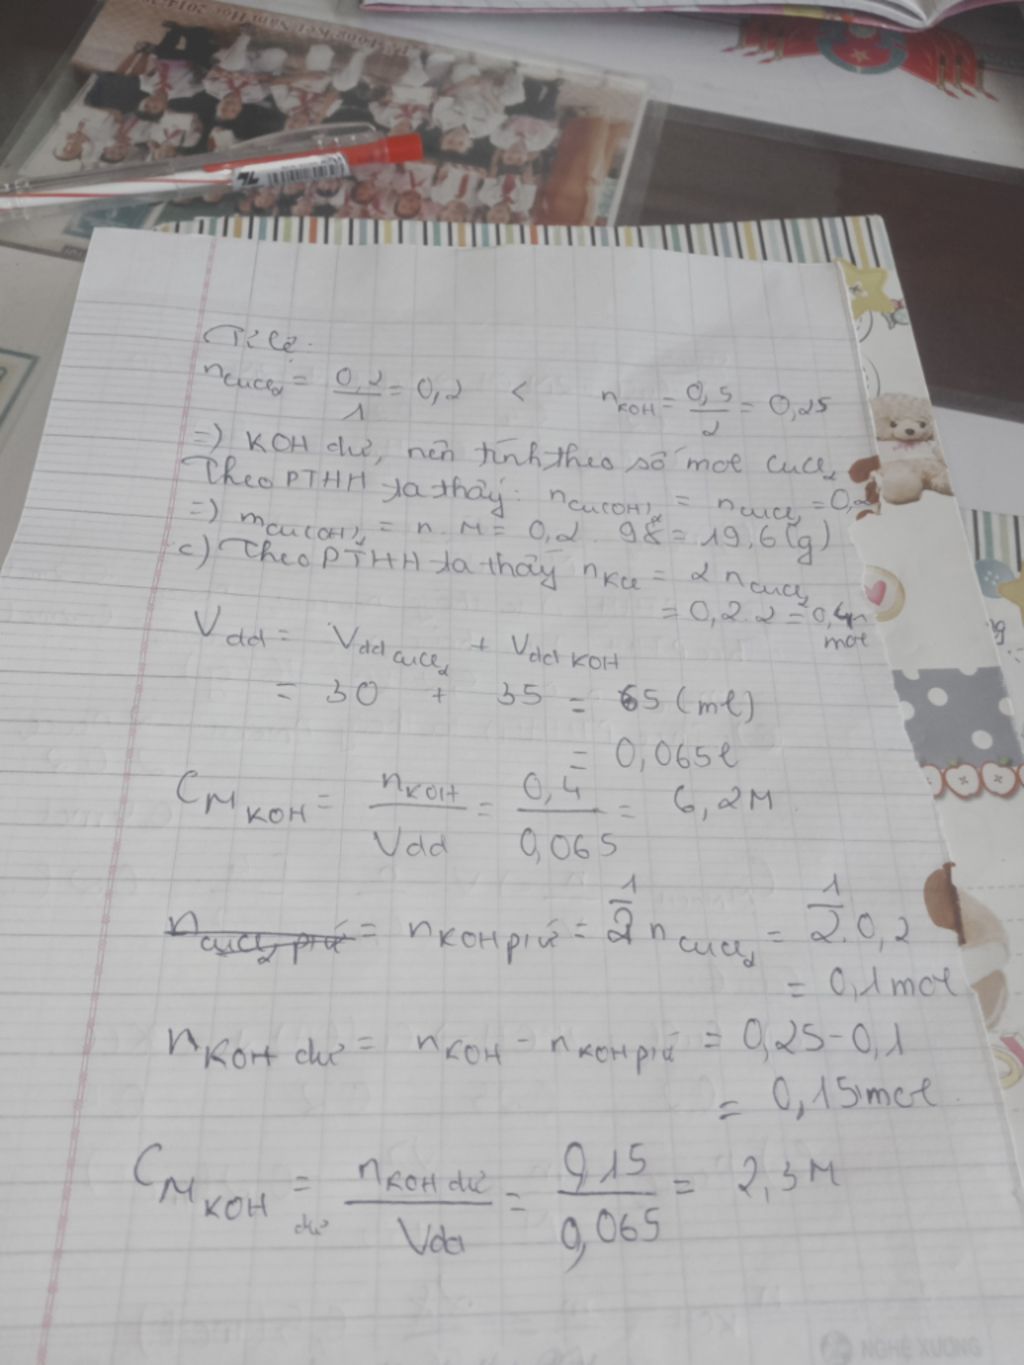 Tỉ lệ:
nCuCl₂ = 0,2/1 = 0,2 < nKOH = 0,5/2 = 0,25
=) KOH dư, nên tính theo số mol CuCl₂
Theo PTHH ta thấy: nCu(OH)₂ = nCuCl₂ = 0,2
=) mCu(OH)₂ = n.M = 0,2 . 98 = 19,6 (g)
c) Theo PTHH ta thấy nKCl = 2 nCuCl₂
= 0,2.2 = 0,4
mol
Vdd = VddCuCl₂ + VddKOH
= 30 + 35 = 65 (ml)
= 0,065l
CM KOH = nKOH/Vdd = 0,4/0,065 = 6,2M
nCuCl₂ pứ = nKOH pứ = 1/2 nCuCl₂ = 1/2.0,2
= 0,1 mol
nKOH dư = nKOH - nKOH pứ = 0,25-0,1
= 0,15mol
CM KOH dư = nKOH dư/Vdd = 0,15/0,065 = 2,3M
NGHỆ XƯƠNG